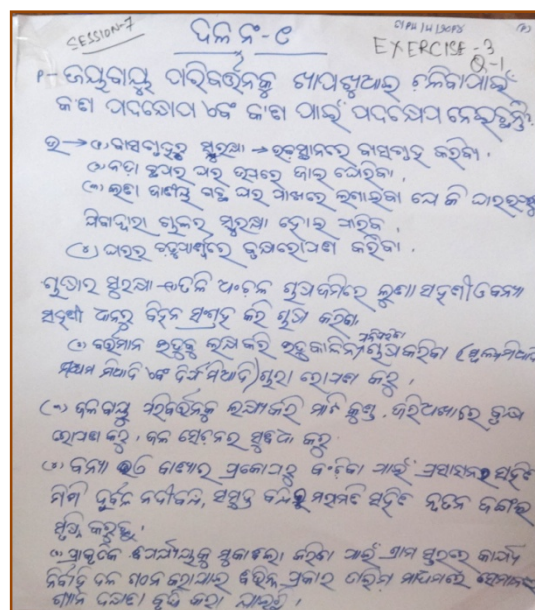 SESSION-7
ଦଳ ନଂ - ୯
EXERCISE - 3
Q-1
ପ୍ର- ଜଳବାୟୁ ପରିବର୍ତ୍ତନକୁ ଖାପଖୁଆଇ ଚଳିବାପାଇଁ
କ'ଣ ପଦକ୍ଷେପ ଏବଂ କ'ଣ ପାଇଁ ପଦକ୍ଷେପ ନେଇଛନ୍ତି?
ଉ → (୧) ବାସଗୃହର ସୁରକ୍ଷା → ଉଚ୍ଚସ୍ଥାନରେ ବାସଗୃହ କରିବା.
(୨) ଘର ଉପରେ ଜାଲ ଘେରିବା.
(୩) ଗଛ ଘର ପାଖରେ ଲଗାଇବା ଯେ କି
ଯାହାଦ୍ୱାରା ସୁରକ୍ଷା ହୋଇ ପାରିବ.
(୪) ଘରର ଚତୁଃପାର୍ଶ୍ୱରେ ବୃକ୍ଷରୋପଣ କରିବା.
ଚାଷର ସୁରକ୍ଷା → ତଳି ଅଂଚଳ ଚାଷଜମିରେ ଲୁଣା ସହଣୀ ଓ ବନ୍ୟା
ସହଣୀ ଧାନର ବିହନ ସଂଗ୍ରହ କରି ଚାଷ କରିବା.
(୨) ବର୍ତ୍ତମାନ ଋତୁକୁ ଲକ୍ଷ କରି ଋତୁକାଳିନ ଚାଷ କରିବା (ସ୍ୱଳ୍ପ ମିଆଦି
ମଧ୍ୟମ ମିଆଦି ଏବଂ ଦିର୍ଘ ମିଆଦି) ଚାରା ରୋପଣ କରୁ.
(୩) ଜଳବାୟୁ ପରିବର୍ତ୍ତନକୁ ଲକ୍ଷ୍ୟକରି ମାଟି କୁଣ୍ଡ, ଜରିଅଖାରେ ବୃକ୍ଷ
ରୋପଣ କରୁ, ଜଳ ସେଚନର ସୁବିଧା କରୁ.
(୪) ବନ୍ୟା ଓ ବାତ୍ୟାର ପ୍ରକୋପରୁ ବଂଚିବା ପାଇଁ ପ୍ରଶାସନର ସହିତ
ମିଶି ଦୁର୍ବଳ ନଦୀବନ୍ଧ, ସମୁଦ୍ର ବନ୍ଧର ମରାମତି ସହିତ ନୂତନ ଜଙ୍ଗଲ
ସୃଷ୍ଟି କରୁଛୁ.
(୫) ପ୍ରାକୃତିକ ବିପର୍ଯ୍ୟୟକୁ ମୁକାବିଲା କରିବା ପାଇଁ ଗ୍ରାମ ସ୍ତରରେ କାର୍ଯ୍ୟ
ନିର୍ବାହୀ ଦଳ ଗଠନ କରାଯାଇ ବିଭିନ୍ନ ପ୍ରକାର ତାଲିମ ମାଧ୍ୟମରେ ସେମାନଙ୍କ
ଜ୍ଞାନ ଦକ୍ଷତା ବୃଦ୍ଧି କରା ଯାଇଛି.